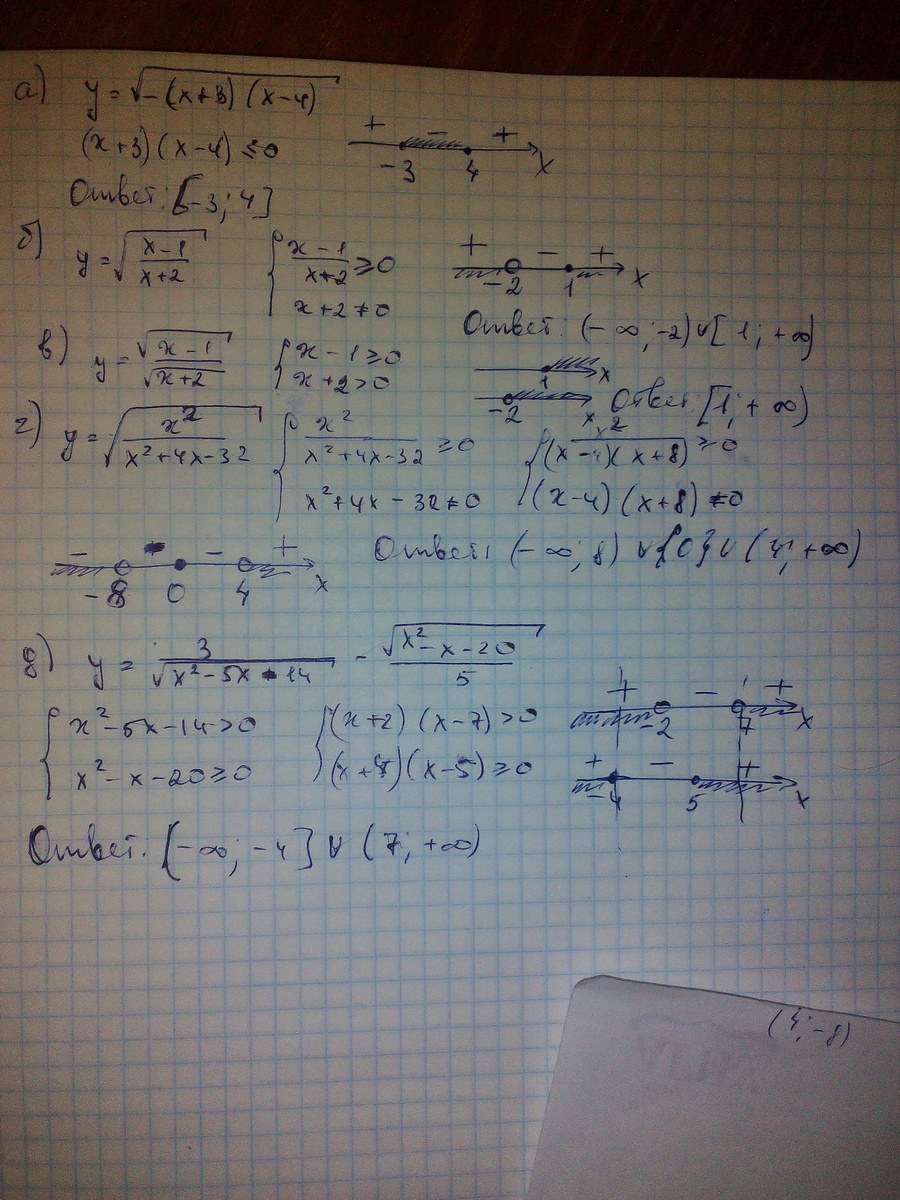 а) y = √(-(x+3)(x-4))
(x+3)(x-4) ≤ 0
+ - +
-3 4 x
Ответ: [-3; 4]
б) y = √((x-1)/(x+2)) { (x-1)/(x+2) ≥ 0
x+2 ≠ 0
+ - +
-2 1 x
Ответ: (-∞; -2) ∪ [1; +∞)
в) y = √(x-1)/√(x+2) { x-1 ≥ 0
x+2 > 0
1 x
-2 x
Ответ: [1; +∞)
г) y = √(x²/(x²+4x-32)) { x²/(x²+4x-32) ≥ 0 { x²/((x-4)(x+8)) ≥ 0
x²+4x-32 ≠ 0 (x-4)(x+8) ≠ 0
- - +
-8 0 4 x
Ответ: (-∞; 8) ∪ {0} ∪ (4; +∞)
д) y = 3/√(x²-5x-14) - √(x²-x-20)/5
{ x²-5x-14 > 0 { (x+2)(x-7) > 0
x²-x-20 ≥ 0 (x+4)(x-5) ≥ 0
+ - +
-2 7 x
+ - +
-4 5 x
Ответ: [-∞; -4] ∪ (7; +∞)